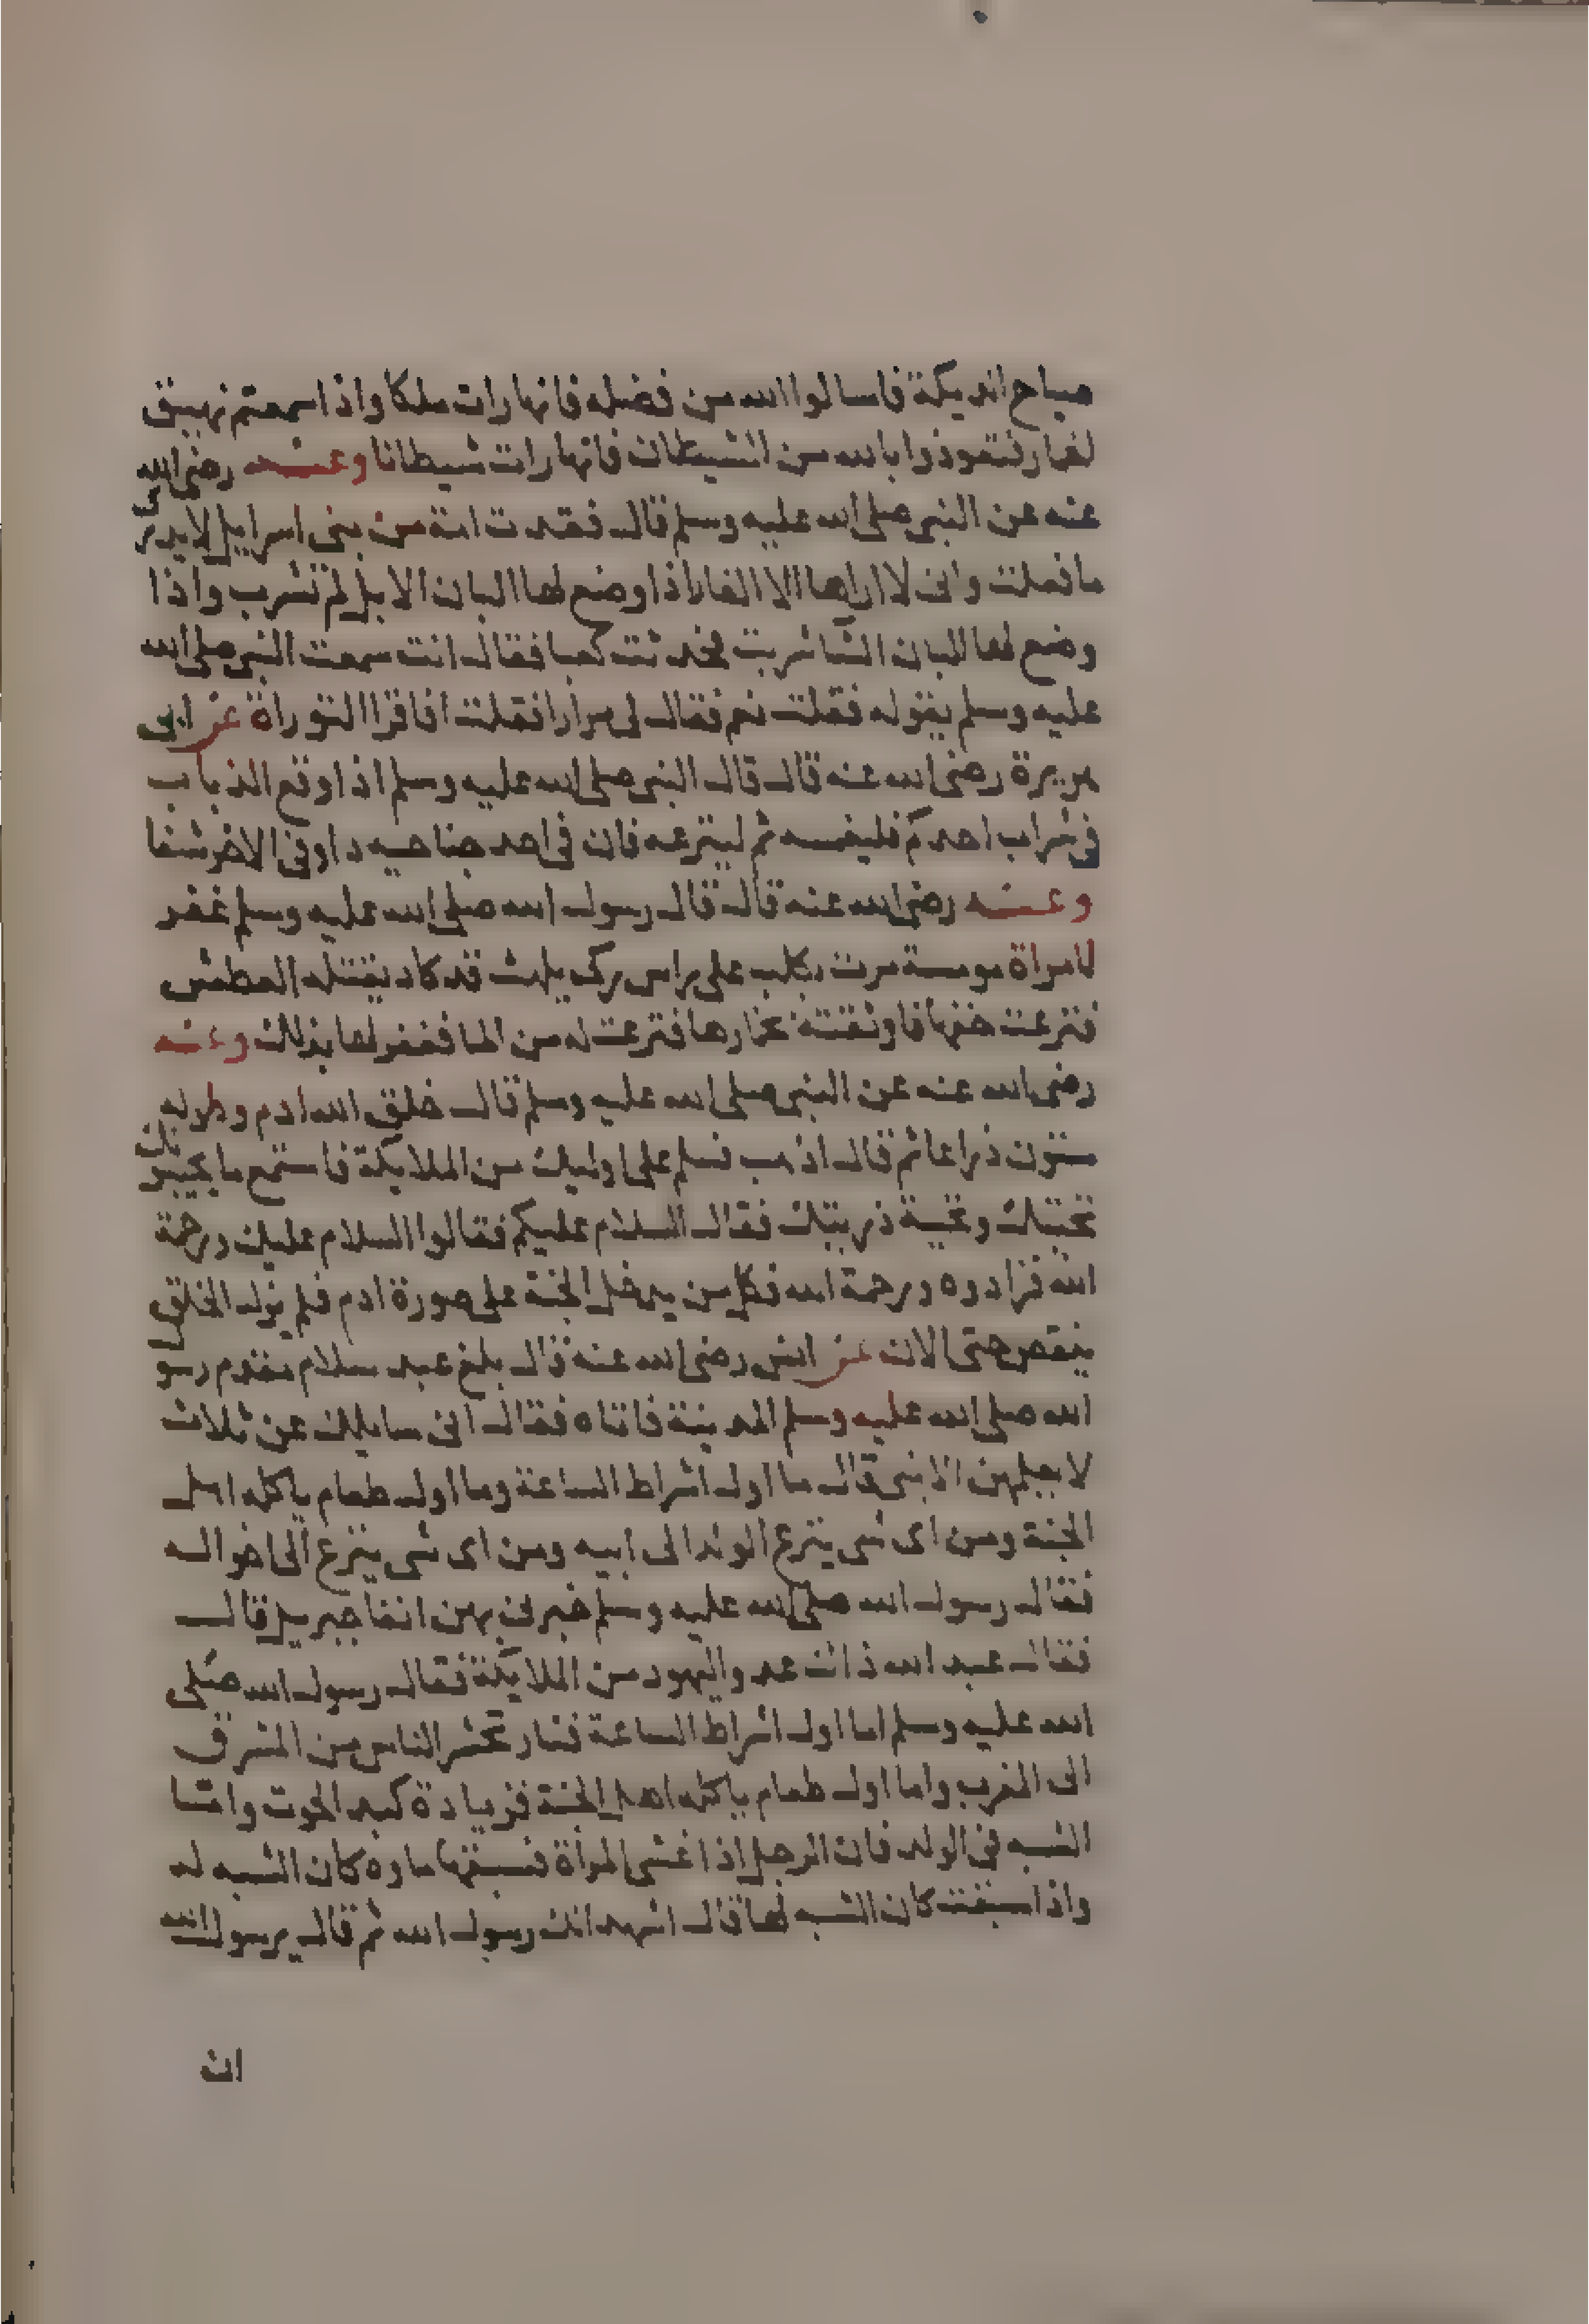 صياح الديكة فاسالوا الله من فضله فانها رات ملكا واذا سمعتم نهيق
لغمار فتعوذوا بالله من الشيطان فانها رات شيطانا وعنه رضي الله
عنه عن النبي صلى الله عليه وسلم قال فقدت امة من بني اسرايل لا يدري
ما فعلت واني لا اراها الا الفار اذا وضع لها البان الابل لم تشرب واذا
وضع لها البان الشا شربت فحدثت كعبا فقال انت سمعت النبي صلى الله
عليه وسلم يقوله فقلت نعم فقال لي مرارا فقلت افاقرا التوراة عن ابي
هريرة رضي الله عنه قال قال النبي صلى الله عليه وسلم اذا وقع الذباب
في شراب احدكم فليغمسه ثم لينزعه فان في احد جناحيه دا وفي الاخر شفا
وعنه رضي الله عنه قال قال رسول الله صلى الله عليه وسلم غفر
لامراة مومسة مرت بكلب على راس ركي يلهث قد كاد يقتله العطش
فنزعت خفها فاوثقته بخمارها فنزعت له من الما فغفر لها بذلك وعنه
رضي الله عنه عن النبي صلى الله عليه وسلم قال خلق الله ادم وطوله
ستون ذراعا ثم قال اذهب فسلم على اوليك من الملايكة فاستمع ما يحيونك
تحيتك وتحية ذريتك فقال السلام عليكم فقالوا السلام عليك ورحمة
الله فزادوه ورحمة الله فكل من يدخل الجنة على صورة ادم فلم يزل الخلق
ينقص حتى الان عن انس رضي الله عنه قال بلغ عبد سلام مقدم رسو
الله صلى الله عليه وسلم المدينة فاتاه فقال اني سايلك عن ثلاث
لا يعلمهن الا نبي قال ما اول اشراط الساعة وما اول طعام ياكله اهل
الجنة ومن اي شي ينزع الولد الى ابيه ومن اي شي ينزع الى اخواله
فقال رسول الله صلى الله عليه وسلم خبرني بهن انفا جبريل قال
فقال عبد الله ذاك عدو اليهود من الملايكة فقال رسول الله صلى
الله عليه وسلم اما اول اشراط الساعة فنار تحشر الناس من المشرق
الى المغرب واما اول طعام ياكله اهل الجنة فزيادة كبد الحوت واما
الشبه في الولد فان الرجل اذا غشي المراة فسبقها ماوه كان الشبه له
واذا سبقت كان الشبه لها قال اشهد انك رسول الله ثم قال يرسول الله
ان